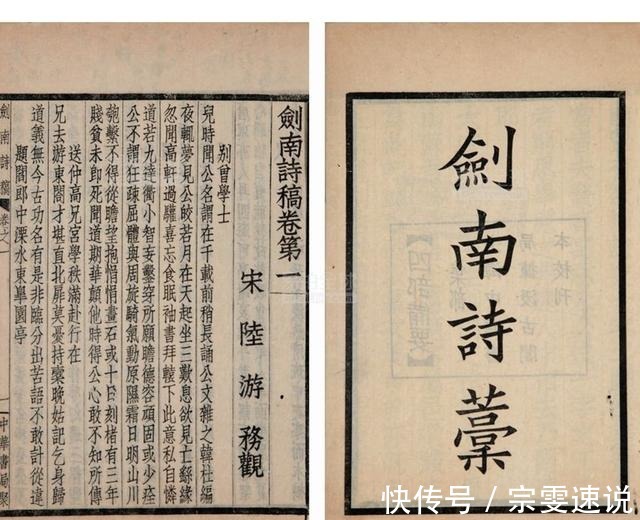 劍南詩藁
本校刊
局據汲古閣
四部備要
劍南詩稿卷第一
宋 陸游 務觀
別曾學士
兒時聞公名謂在千載前稍長誦公文雜之韓杜編
夜輒夢見公皎若月在天起坐三歎息欲見亡繇緣
忽聞高軒過驩喜忘食眠袖書拜轅下此意私自憐
道若九達衢小智妄鑿穿所願瞻德容頑固或少痊
公不謂狂疎屈體與周旋騎氣動原隰霜日明山川
匏繫不得從瞻望抱悁悁畫石或十日刻楮有三年
賤貧未即死聞道期華顛他時得公心敢不知所傳
送仲高兄宮學秩滿赴行在
兄去游東閤才堪直北扉莫憂持橐晚姑記乞身歸
道義無今古功名有是非臨分出苦語不敢計從違
題閻郎中溧水東皐園亭
劍南詩稿 卷之
中華書局聚
快传号 / 宗雯速说